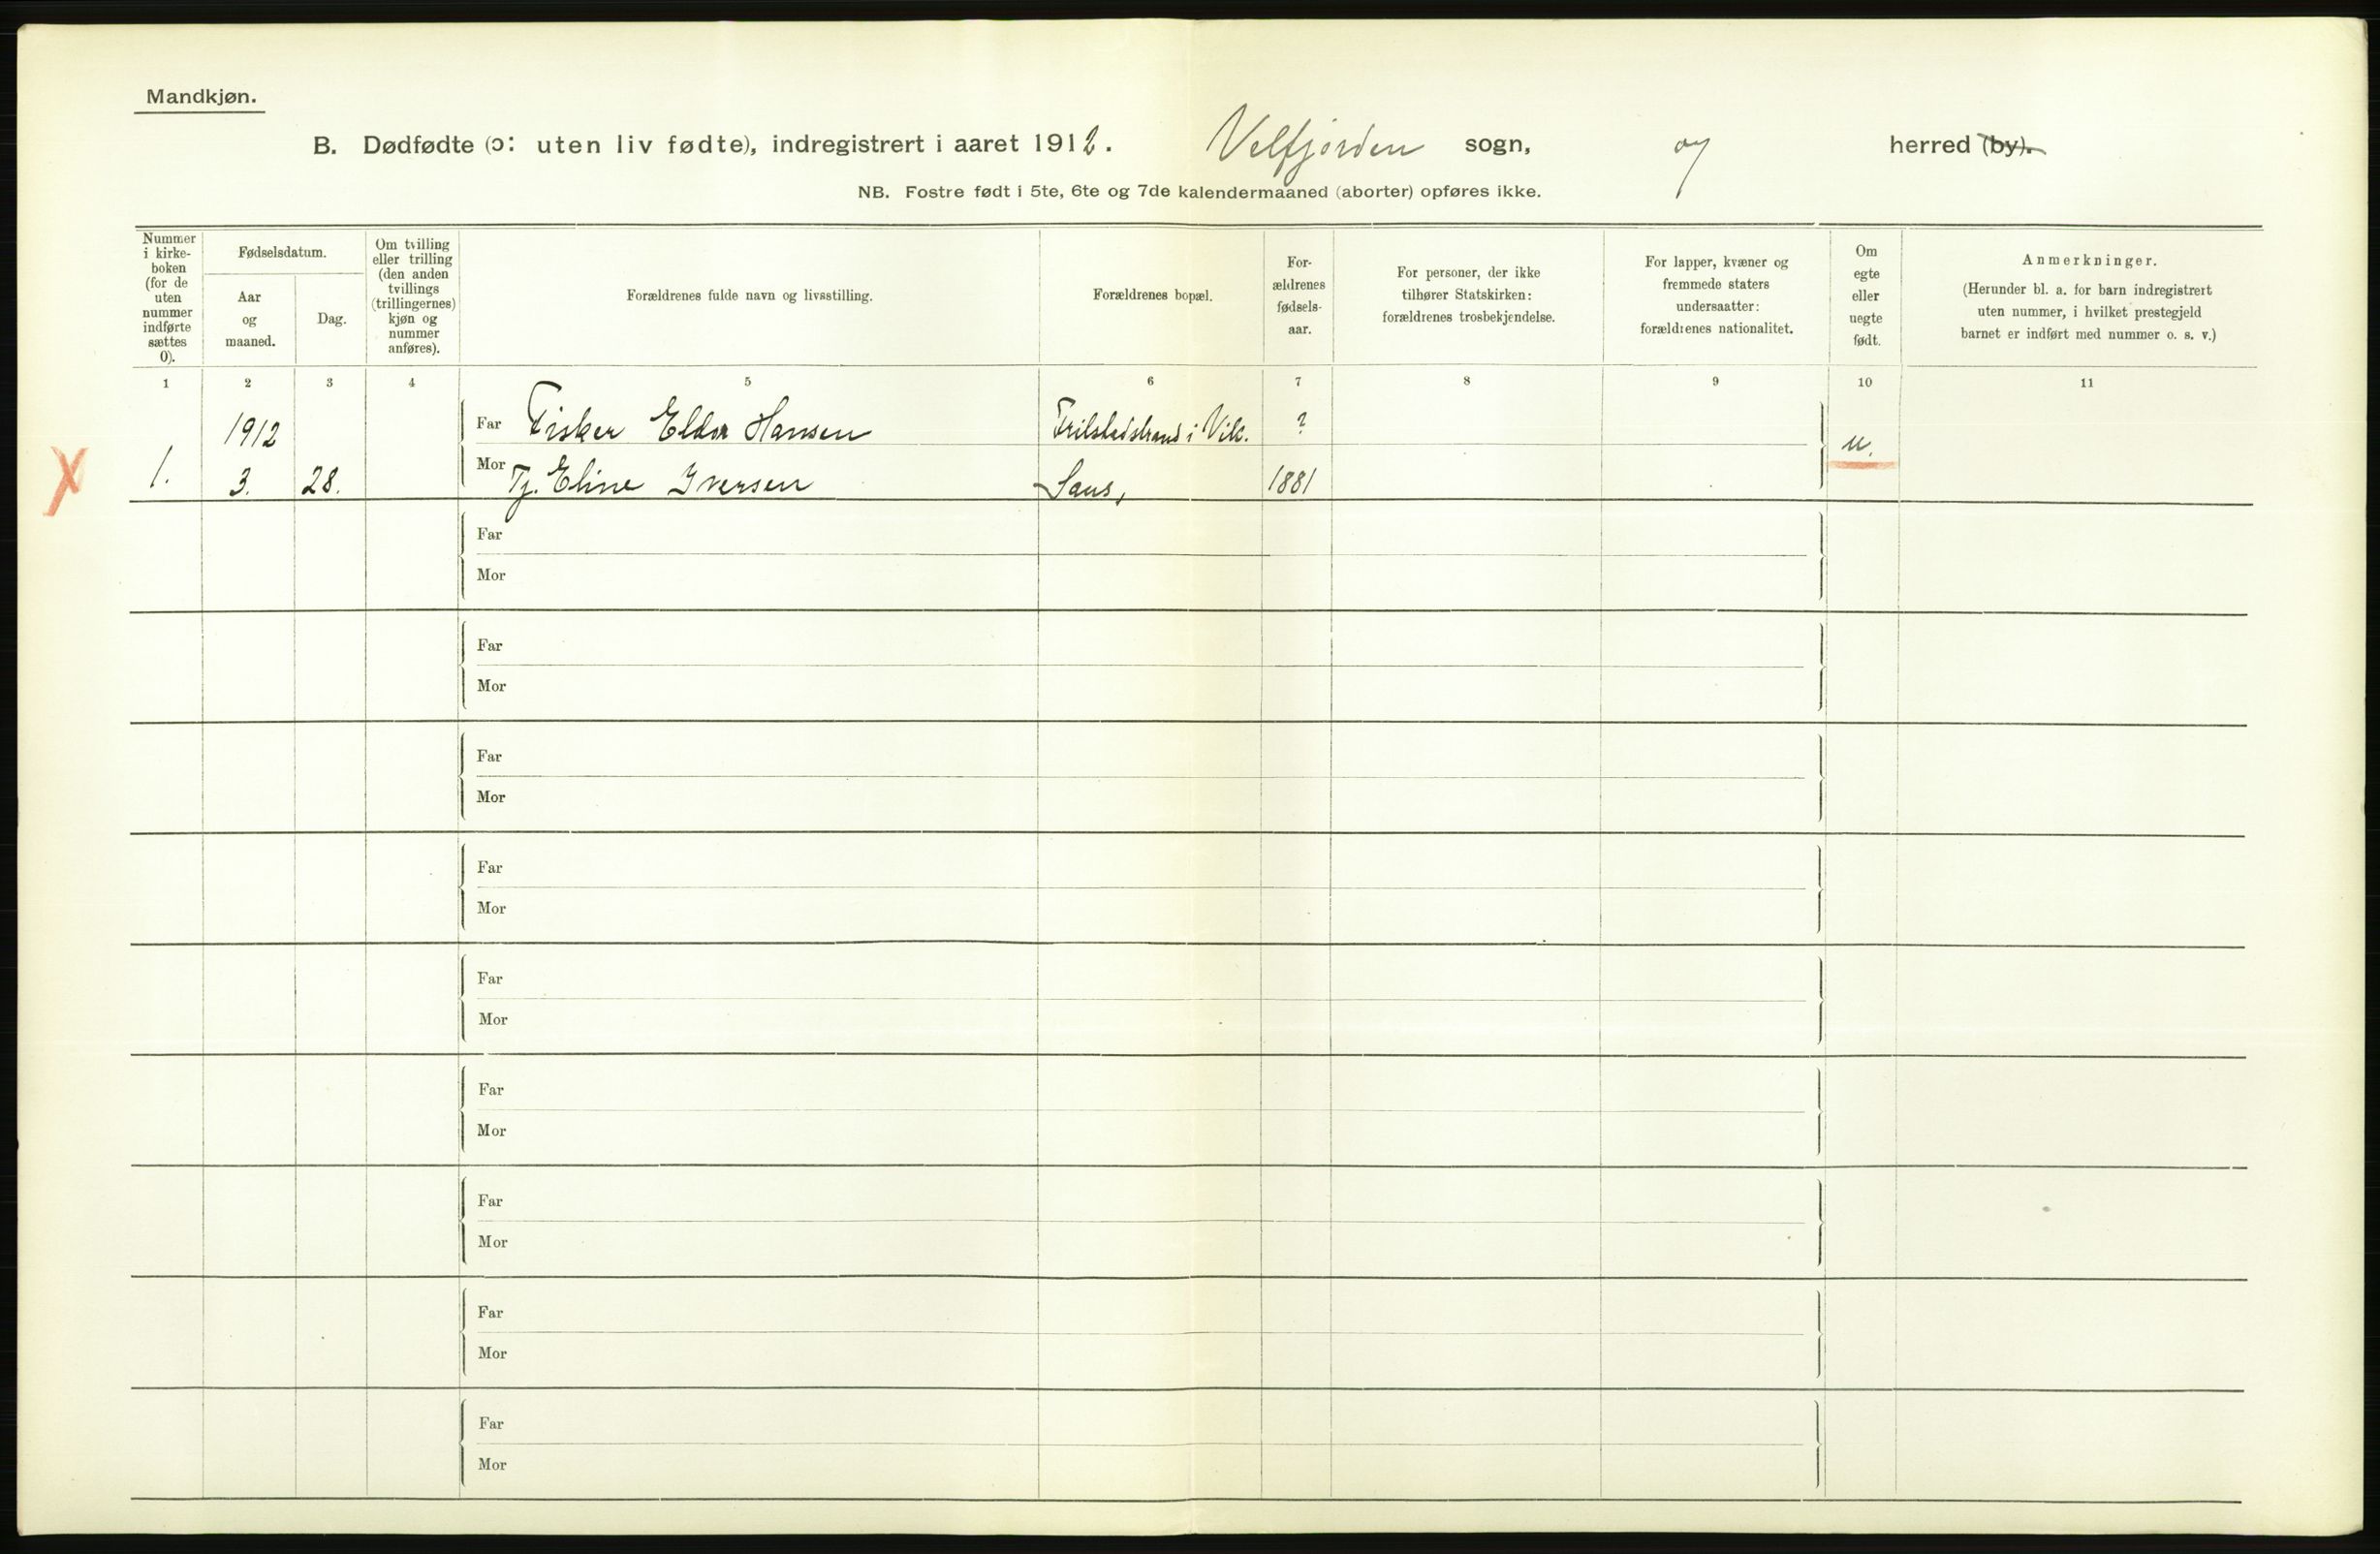 Mandkjøn.
B. Dødfødte (ɔ: uten liv fødte), indregistrert i aaret 1912. Velfjorden sogn, og herred (by).
NB. Fostre født i 5te, 6te og 7de kalendermaaned (aborter) opføres ikke.
Nummer
i kirke-
boken
(for de
uten
nummer
indførte
sættes
0).
Fødselsdatum.
Aar
og
maaned.
Dag.
Om tvilling
eller trilling
(den anden
tvillings
(trillingernes)
kjøn og
nummer
anføres).
Forældrenes fulde navn og livsstilling.
Forældrenes bopæl.
For-
ældrenes
fødsels-
aar.
For personer, der ikke
tilhører Statskirken:
forældrenes trosbekjendelse.
For lapper, kvæner og
fremmede staters
undersaatter:
forældrenes nationalitet.
Om
egte
eller
uegte
født.
Anmerkninger.
(Herunder bl. a. for barn indregistrert
uten nummer, i hvilket prestegjeld
barnet er indført med nummer o. s. v.)
1 2 3 4 5 6 7 8 9 10 11
1912 Far Fisker Eldor Hansen i Vik. ? u.
1. 3. 28. Mor Tj. Eline Iversen Saus, 1881
Far
Mor
Far
Mor
Far
Mor
Far
Mor
Far
Mor
Far
Mor
Far
Mor
Far
Mor
Far
Mor